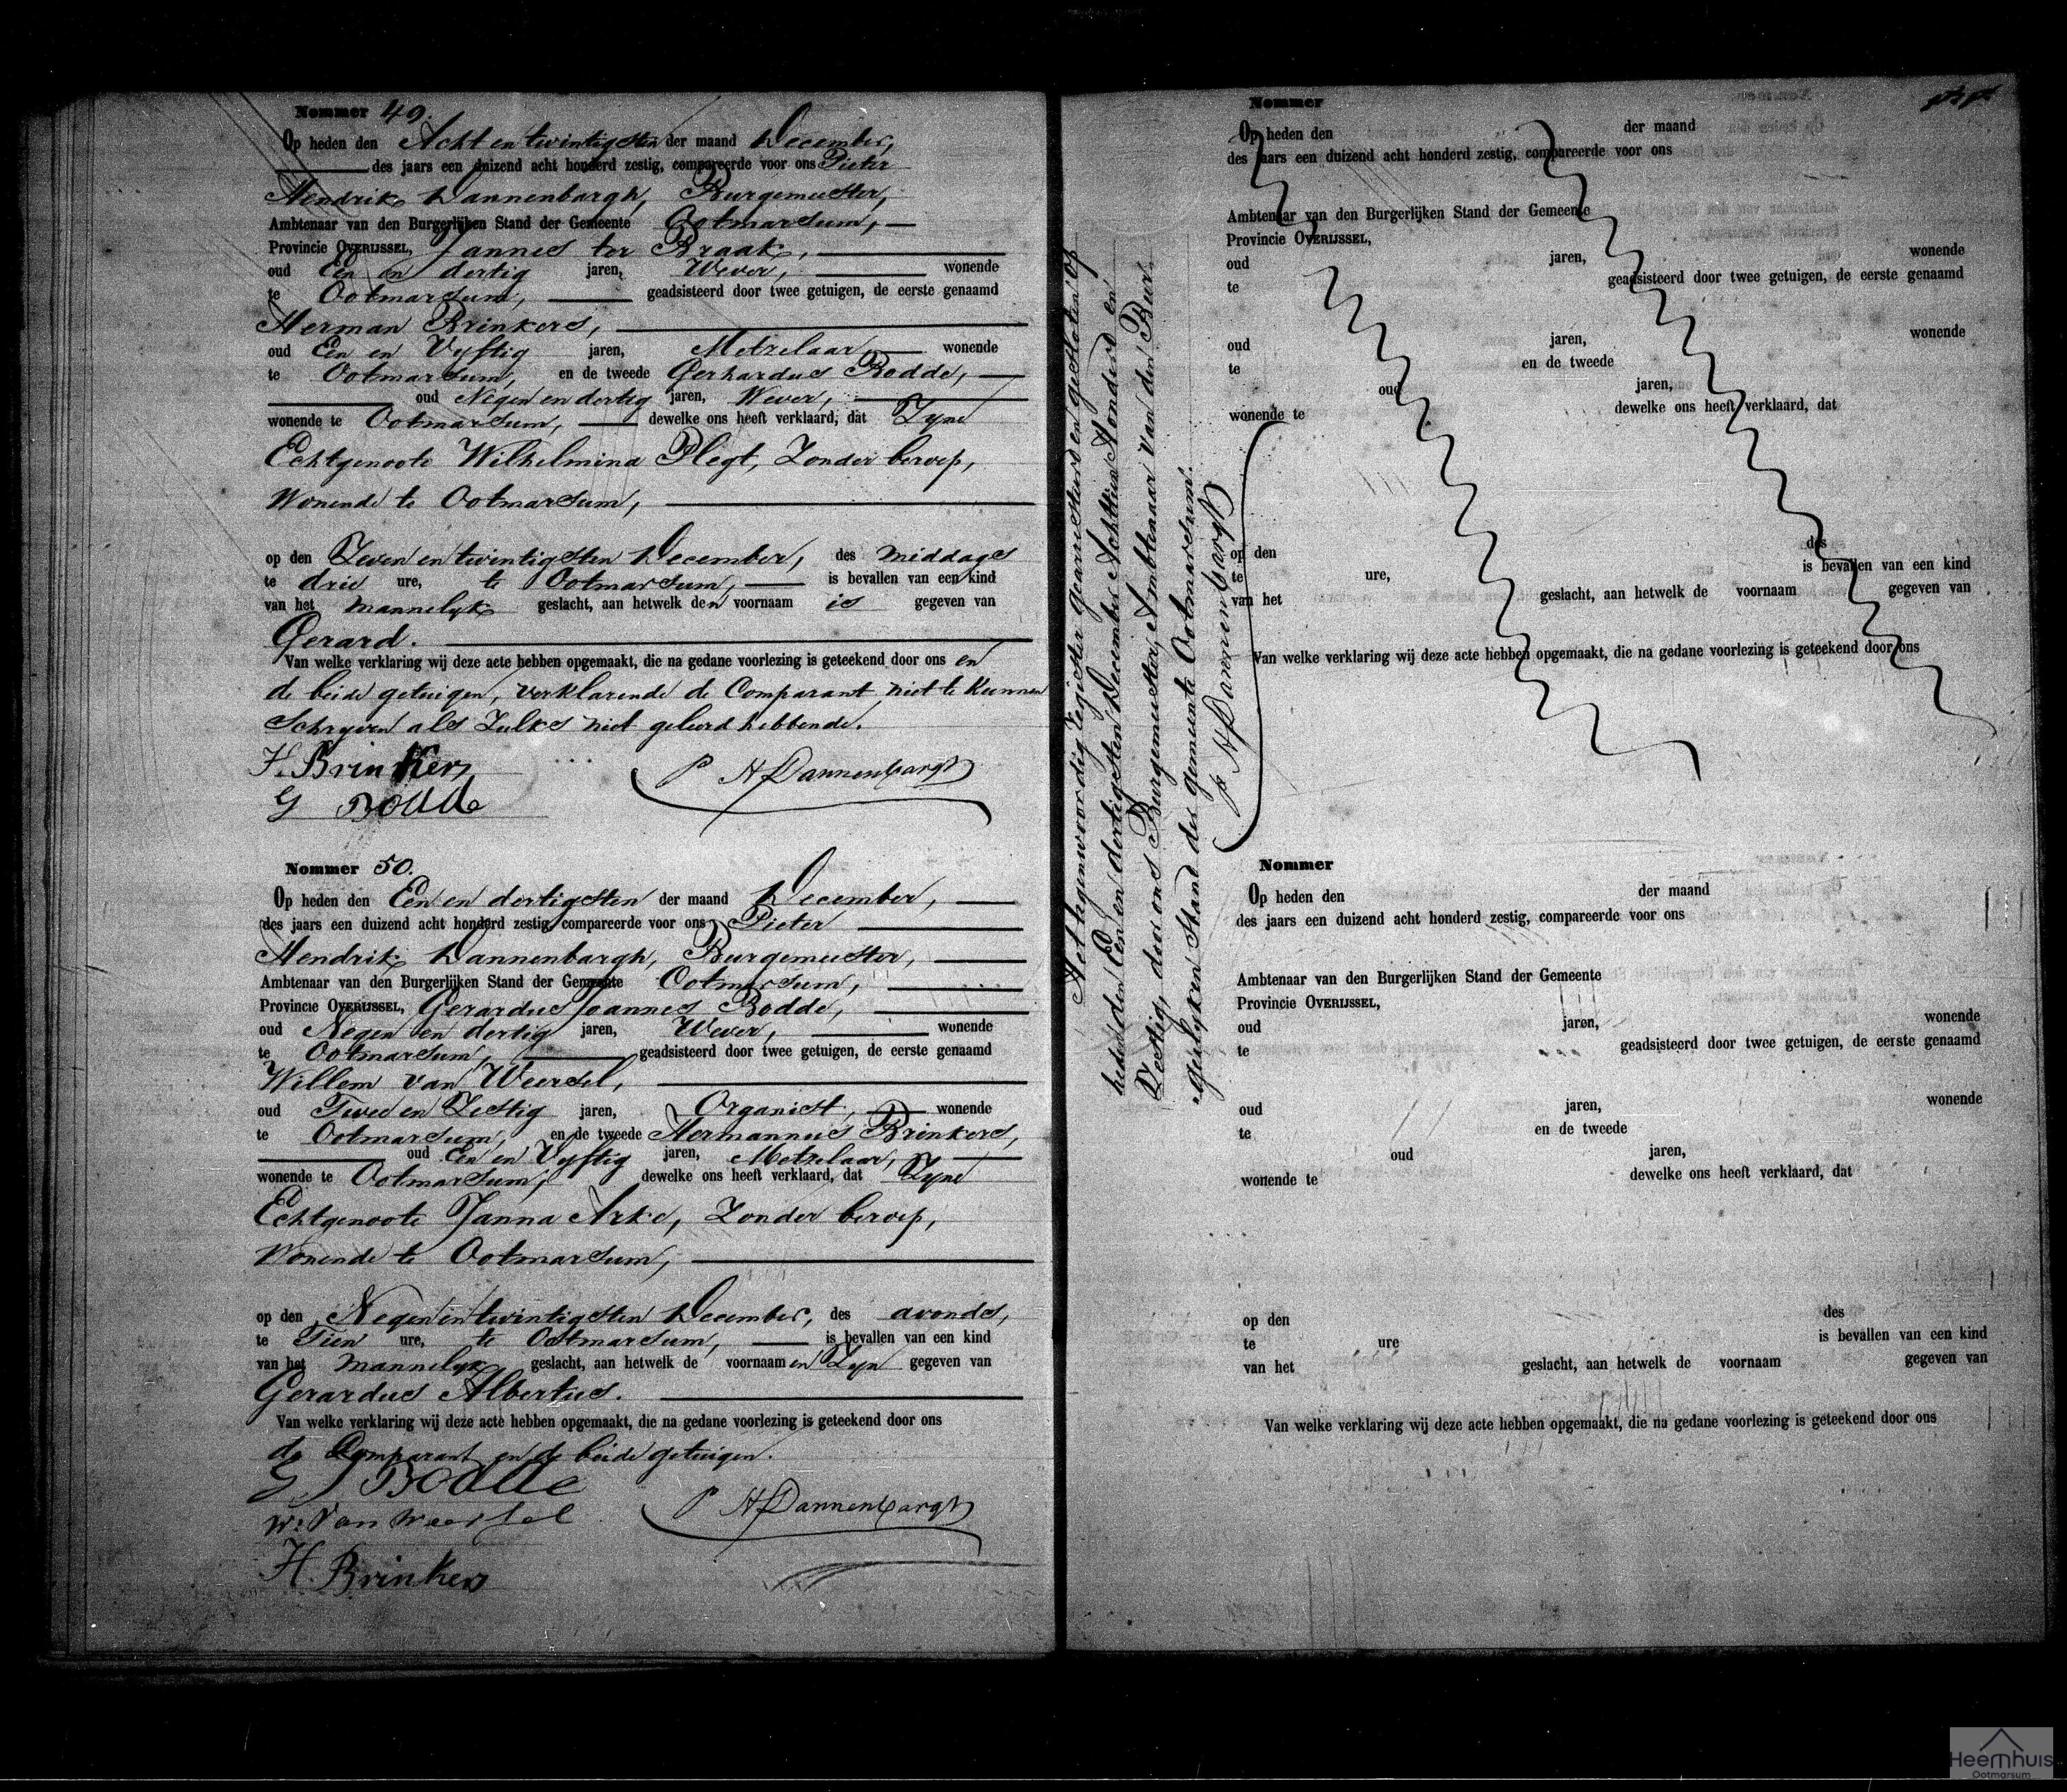 Nommer 49.
Op heden den Acht en twintigsten der maand December,
des jaars een duizend acht honderd zestig, compareerde voor ons Pieter
Hendrik Dannenbargh, Burgemeester,
Ambtenaar van den Burgerlijken Stand der Gemeente Ootmarsum,
Provincie OVERIJSSEL, Jannes ter Braak,
oud Een en dertig jaren, Wever, wonende
te Ootmarsum, geadsisteerd door twee getuigen, de eerste genaamd
Herman Brinkers,
oud Een en Vyftig jaren, Metzelaar, wonende
te Ootmarsum, en de tweede Gerhardus Bodde,
oud Negen en dertig jaren, Wever,
wonende te Ootmarsum, dewelke ons heeft verklaard, dat Zyne
Echtgenoote Wilhelmina Plegt, Zonder beroep,
Wonende te Ootmarsum,
op den Zeven en twintigsten December, des middags
te drie ure, te Ootmarsum, is bevallen van een kind
van het mannelyk geslacht, aan hetwelk den voornaam is gegeven van
Gerard.
Van welke verklaring wij deze acte hebben opgemaakt, die na gedane voorlezing is geteekend door ons en
de beide getuigen, verklarende de Comparant niet te kunnen
Schryven als Zulks niet geleerd hebbende.
H. Brinkers
P H Dannenbargh
G Bodde
Nommer 50.
Op heden den Een en dertigsten der maand December,
des jaars een duizend acht honderd zestig, compareerde voor ons Pieter
Hendrik Dannenbargh, Burgemeester,
Ambtenaar van den Burgerlijken Stand der Gemeente Ootmarsum,
Provincie OVERIJSSEL, Gerardus Joannes Bodde,
oud Negen en dertig jaren, Wever, wonende
te Ootmarsum, geadsisteerd door twee getuigen, de eerste genaamd
Willem van Weersel,
oud Twee en Zestig jaren, Organist, wonende
te Ootmarsum, en de tweede Hermannus Brinkers,
oud Een en Vyftig jaren, Metzelaar,
wonende te Ootmarsum, dewelke ons heeft verklaard, dat Zyne
Echtgenoote Janna Arke, Zonder beroep,
Wonende te Ootmarsum,
op den Negen en twintigsten December, des avonds,
te Tien ure, te Ootmarsum, is bevallen van een kind
van het mannelyk geslacht, aan hetwelk de voornaamen Zyn gegeven van
Gerardus Albertus.
Van welke verklaring wij deze acte hebben opgemaakt, die na gedane voorlezing is geteekend door ons
de Comparant en de beide getuigen.
G J Bodde
P H Dannenbargh
W: Van Weersel
H. Brinkers
Het tegenwoordig register gearresteerd en gesloten op
heden den Een en dertigsten December Achttien Honderd en
Zestig, door ons Burgemeester, Ambtenaar van den Bur-
gerlyken Stand der gemeente Ootmarssum.
P H Dannenbargh
Nommer
Op heden den der maand
des jaars een duizend acht honderd zestig, compareerde voor ons
Ambtenaar van den Burgerlijken Stand der Gemeente
Provincie OVERIJSSEL,
oud jaren, wonende
te geadsisteerd door twee getuigen, de eerste genaamd
oud jaren, wonende
te en de tweede
oud jaren,
wonende te dewelke ons heeft verklaard, dat
op den des
te ure, is bevallen van een kind
van het geslacht, aan hetwelk de voornaam gegeven van
Van welke verklaring wij deze acte hebben opgemaakt, die na gedane voorlezing is geteekend door ons
Nommer
Op heden den der maand
des jaars een duizend acht honderd zestig, compareerde voor ons
Ambtenaar van den Burgerlijken Stand der Gemeente
Provincie OVERIJSSEL,
oud jaren, wonende
te geadsisteerd door twee getuigen, de eerste genaamd
oud jaren, wonende
te en de tweede
oud jaren,
wonende te dewelke ons heeft verklaard, dat
op den des
te ure is bevallen van een kind
van het geslacht, aan hetwelk de voornaam gegeven van
Van welke verklaring wij deze acte hebben opgemaakt, die na gedane voorlezing is geteekend door ons
Heemhuis
Ootmarsum